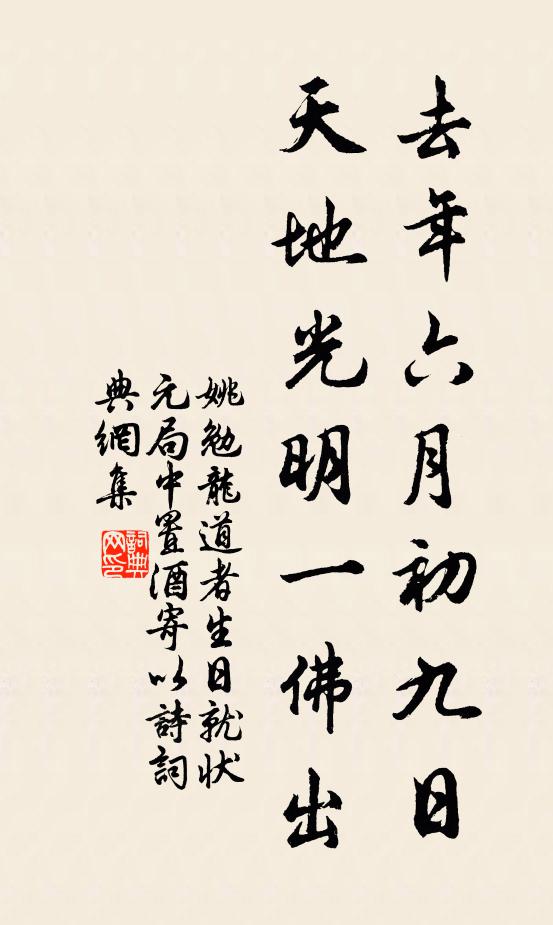 去年六月初九日
天地光明一佛出
姚勉龍道者生日就状
元局中置酒寄以詩詞
典網集
詞典
网印